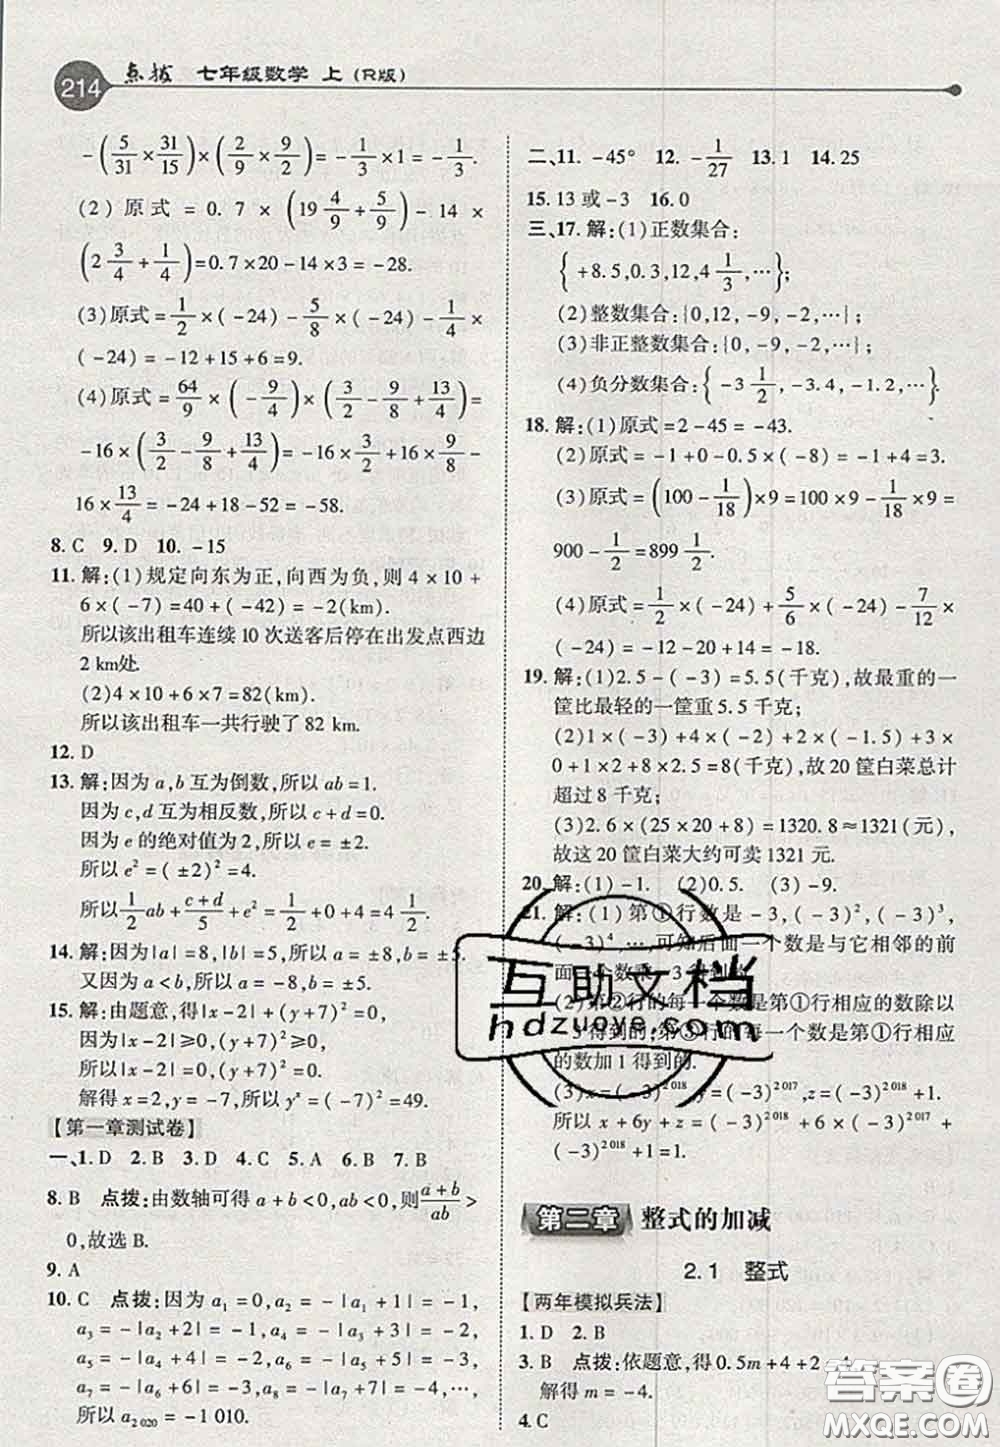 214 点拨 七年级数学 上(R版)
-(5/31×31/15)×(2/9×9/2)=-1/3×1=-1/3.
(2)原式=0.7×(19 4/9+5/9)-14×
(2 3/4+1/4)=0.7×20-14×3=-28.
(3)原式=1/2×(-24)-5/8×(-24)-1/4×
(-24)=-12+15+6=9.
(4)原式=64/9×(-9/4)×(3/2-9/8+13/4)=
-16×(3/2-9/8+13/4)=-16×3/2+16×9/8-
16×13/4=-24+18-52=-58.
8.C 9.D 10.-15
11.解:(1)规定向东为正,向西为负,则4×10+
6×(-7)=40+(-42)=-2(km).
所以该出租车连续10次送客后停在出发点西边
2 km处.
(2)4×10+6×7=82(km).
所以该出租车一共行驶了82 km.
12.D
13.解:因为a,b互为倒数,所以ab=1.
因为c,d互为相反数,所以c+d=0.
因为e的绝对值为2,所以e=±2.
所以e²=(±2)²=4.
所以1/2ab+(c+d)/5+e²=1/2+0+4=4 1/2.
14.解:因为|a|=8,|b|=5,所以a=±8,b=±5.
又因为a<b,所以a=-8,b=±5.
15.解:由题意,得|x-2|+(y+7)²=0.
因为|x-2|≥0,(y+7)²≥0,
所以|x-2|=0,(y+7)²=0.
解得x=2,y=-7,所以yˣ=(-7)²=49.
【第一章测试卷】
一、1.D 2.B 3.D 4.C 5.A 6.B 7.B
8.B 点拨:由数轴可得a+b<0,ab<0,则(a+b)/ab>
0,故选B.
9.A
10.C 点拨:因为a₁=0,a₂=-|a₁+1|=-1,
a₃=-|a₂+2|=-1,a₄=-|a₃+3|=-2,
a₅=-|a₄+4|=-2,a₆=-|a₅+5|=-3,
a₇=-|a₆+6|=-3,a₈=-|a₇+7|=-4,…,
所以a₂₀₂₀=-1 010.
二、11.-45° 12.-1/27 13.1 14.25
15.13或-3 16.0
三、17.解:(1)正数集合:
{+8.5,0.3,12,4 1/3,…};
(2)整数集合:{0,12,-9,-2,…};
(3)非正整数集合:{0,-9,-2,…};
(4)负分数集合:{-3 1/2,-3.4,-1.2,…}.
18.解:(1)原式=2-45=-43.
(2)原式=-1+0-0.5×(-8)=-1+4=3.
(3)原式=(100-1/18)×9=100×9-1/18×9=
900-1/2=899 1/2.
(4)原式=1/2×(-24)+5/6×(-24)-7/12×
(-24)=-12-20+14=-18.
19.解:(1)2.5-(-3)=5.5(千克),故最重的一
筐比最轻的一筐重5.5千克;
(2)1×(-3)+4×(-2)+2×(-1.5)+3×
0+1×2+8×2.5=8(千克),故20筐白菜总计
超过8千克;
(3)2.6×(25×20+8)=1320.8≈1321(元),
故这20筐白菜大约可卖1321元.
20.解:(1)-1. (2)0.5. (3)
21.解:(1)第①行数是-3,(-3)²,(-3)³,
(-3)⁴,…,可知后面一个数是与它相邻的前
面一个数乘-3得到的.
(2)第②行的每一个数是第①行相应的数除以
-3得到的;第③行的每一个数是第①行相应
的数加1得到的.
(3)x=(-3)²⁰¹⁸,y=(-3)²⁰¹⁷,z=(-3)²⁰¹⁸+1.
所以x+6y+z=(-3)²⁰¹⁸+6×(-3)²⁰¹⁷+
(-3)²⁰¹⁸+1=1.
第二章 整式的加减
2.1 整式
【两年模拟兵法】
1.D 2.B
3.B 点拨:依题意,得0.5m+4+2=4.
解得m=-4.
4.C
互助文档
hdzuoye.com
答案圈
MXQE.COM